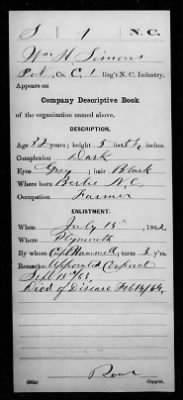 S 1 N.C.
Wm H. Simons
Pvt, Co. C, 1 Reg't N. C. Infantry.
Appears on
Company Descriptive Book
of the organization named above.
DESCRIPTION.
Age 32 years; height 5 feet inches.
Complexion Dark
Eyes Grey; hair Black
Where born Bertie N.C.
Occupation Farmer
ENLISTMENT.
When July 15, 1862.
Where Plymouth
By whom Capt Hammell; term 3 y'rs.
Remarks: Appointed Corporal
Sept 15" 63,
Died of Disease Feb 14/64.
Copyist.